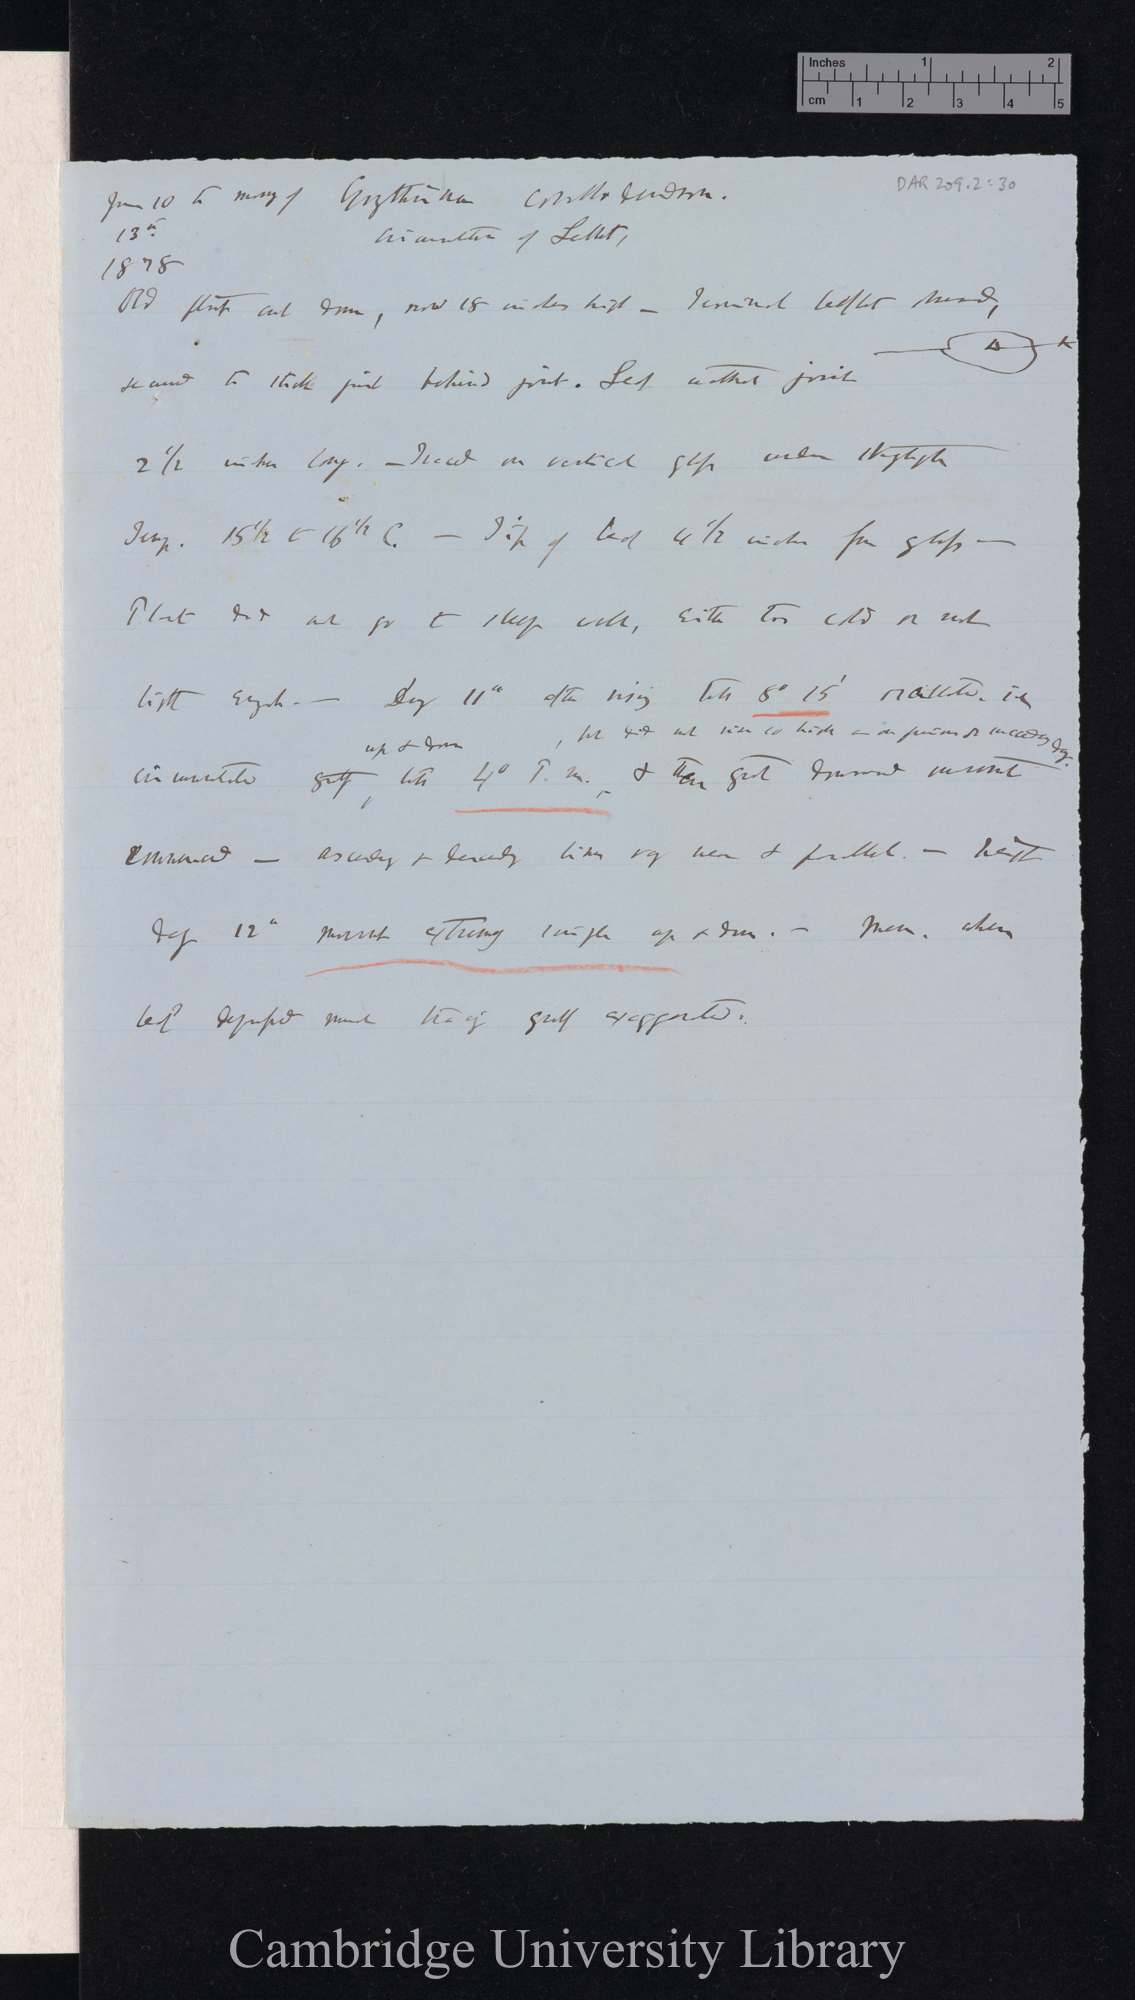 Inches 1 2
cm 1 2 3 4 5
DAR 209.2:30
June 10 to morng of Erythrina corallodendron.
13th
1878
circumnutation of Leaflet,
Old plant cut down, now 18 inches high — Terminal leaflet traced,
secured to stick just behind joint. Leaf without joint
2 1/2 inches long. — Traced on vertical glass under skylight
Temp. 15 1/2 to 16 1/2 C. — Tip of leaf 4 1/2 inches from glass —
Plant did not go to sleep well, either too cold or not
light enough. — Day 11th after rising till 8° 15' oscillated. ie
up & down , but did not rise so high as on previous or succeeding day.
circumnutated greatly, till 4° P. m. & then great downward movement
commenced — ascending & descending lines very near & parallel. — Next
day 12th movement extremely simple up & down. — Mem. when
leaf depressed much tracing greatly exaggerated.
Cambridge University Library